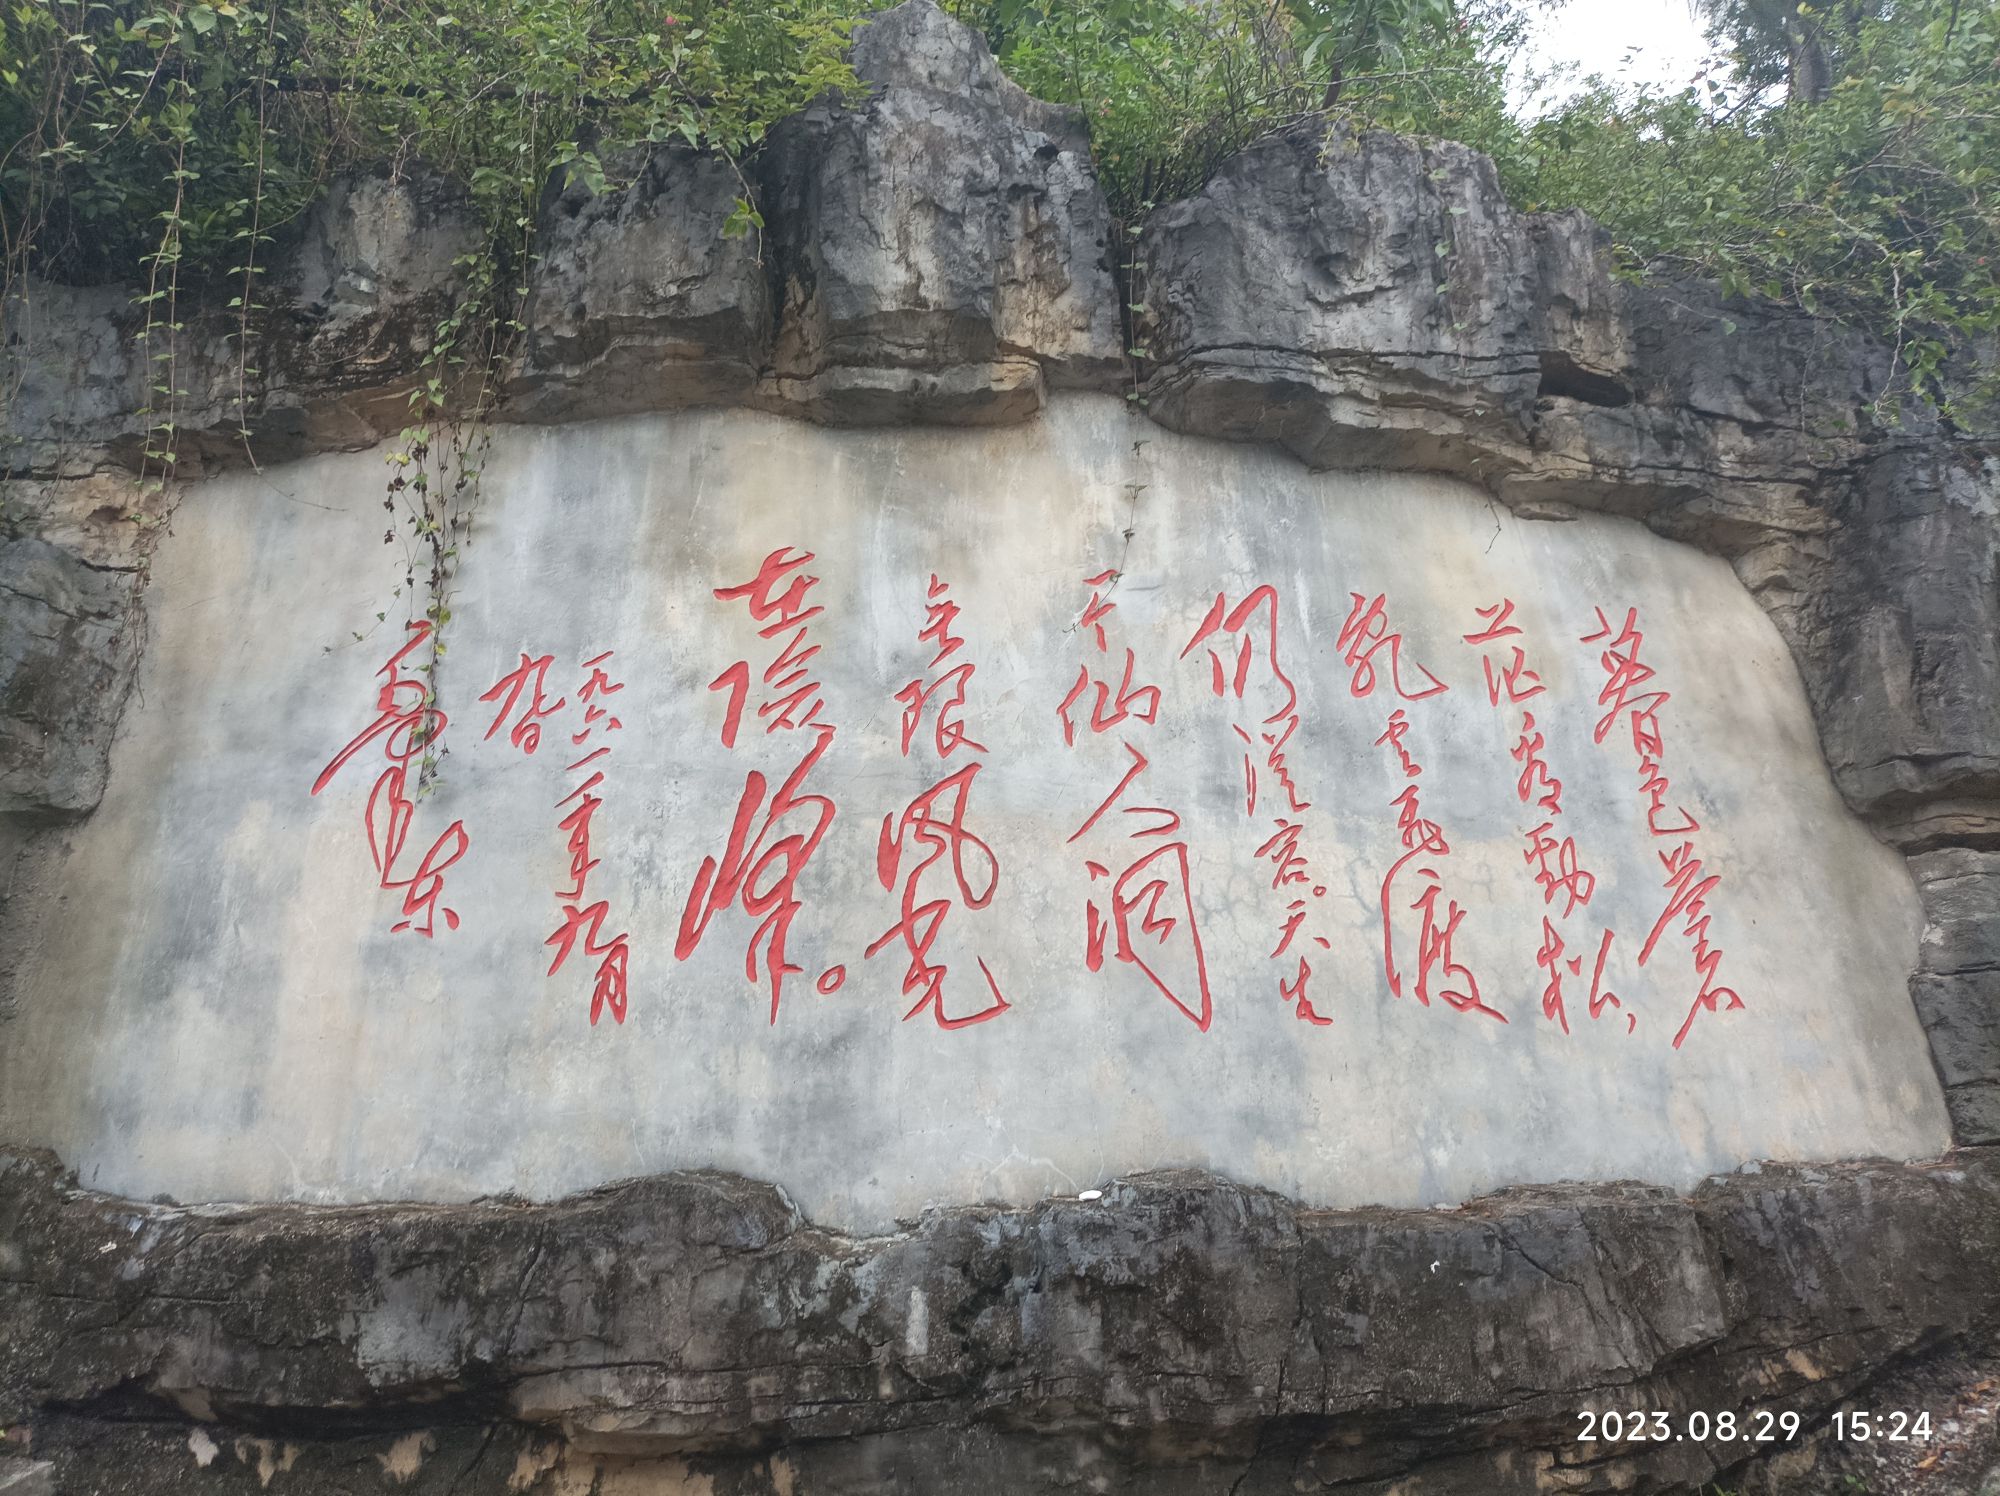 暮色蒼
茫看勁松
乱云飛渡
仍從容。天生
一个仙人洞
无限风光
在险峰。
一九六一年九月
九日
毛泽东
2023.08.29 15:24